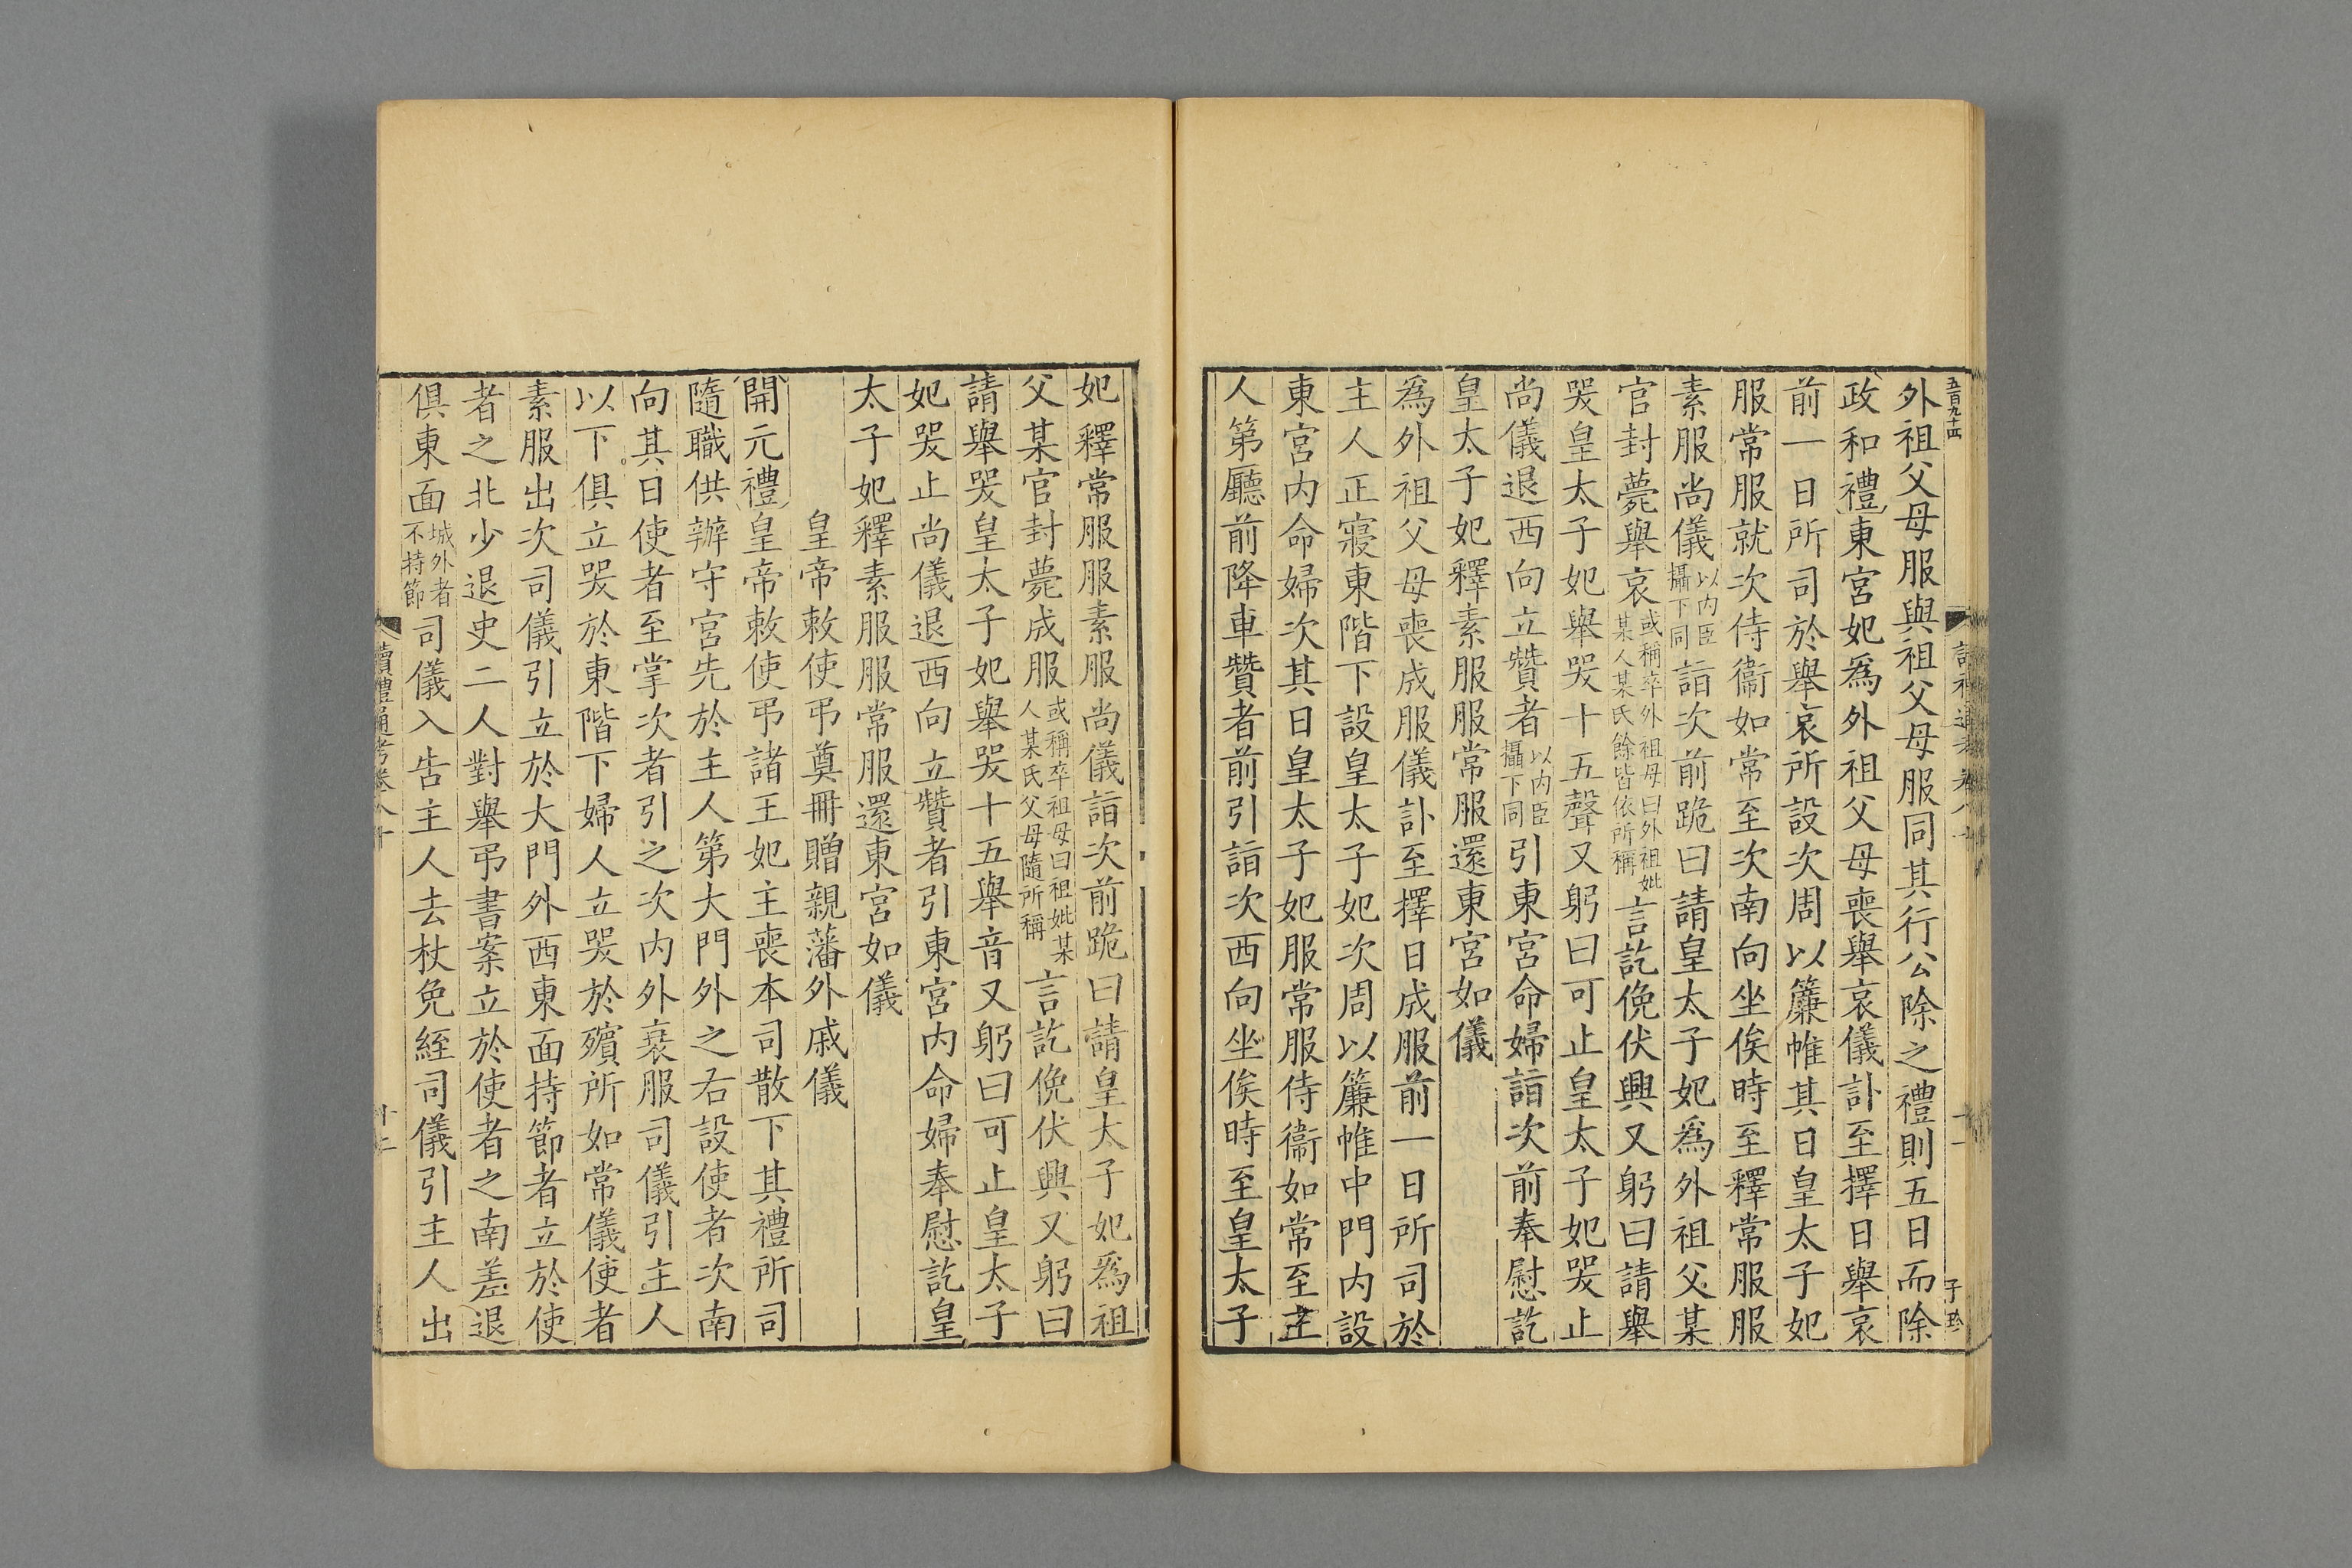 五百九十四
外祖父母服與祖父母服同其行公除之禮則五日而除
政和禮東宮妃爲外祖父母喪舉哀儀訃至擇日舉哀
前一日所司於舉哀所設次周以簾帷其日皇太子妃
服常服就次侍衞如常至次南向坐俟時至釋常服服
素服尚儀以内臣攝下同詣次前跪曰請皇太子妃爲外祖父某
官封薨舉哀或稱卒外祖母曰外祖妣某人某氏餘皆依所稱言訖俛伏興又躬曰請舉
哭皇太子妃舉哭十五聲又躬曰可止皇太子妃哭止
尚儀退西向立贊者以内臣攝下同引東宮命婦詣次前奉慰訖
皇太子妃釋素服服常服還東宮如儀
爲外祖父母喪成服儀訃至擇日成服前一日所司於
主人正寢東階下設皇太子妃次周以簾帷中門内設
東宮内命婦次其日皇太子妃服常服侍衞如常至主
人第廳前降車贊者前引詣次西向坐俟時至皇太子
妃釋常服服素服尚儀詣次前跪曰請皇太子妃爲祖
父某官封薨成服或稱卒祖母曰祖妣某人某氏父母隨所稱言訖俛伏興又躬曰
請舉哭皇太子妃舉哭十五舉音又躬曰可止皇太子
妃哭止尚儀退西向立贊者引東宮内命婦奉慰訖皇
太子妃釋素服服常服還東宮如儀
皇帝敕使弔奠冊贈親藩外戚儀
開元禮皇帝敕使弔諸王妃主喪本司散下其禮所司
隨職供辦守宮先於主人第大門外之右設使者次南
向其日使者至掌次者引之次内外衰服司儀引主人
以下俱立哭於東階下婦人立哭於殯所如常儀使者
素服出次司儀引立於大門外西東面持節者立於使
者之北少退史二人對舉弔書案立於使者之南差退
俱東面城外者不持節司儀入告主人去杖免絰司儀引主人出
讀禮通考卷八十